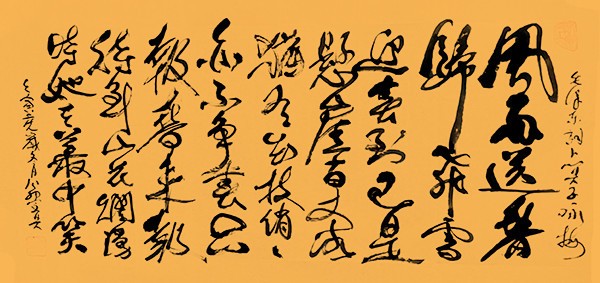 毛泽东词卜算子咏梅
風雨送春
歸飛雪
迎春到已是
懸崖百丈冰
猶有花枝俏〻
也不争春只
把春来報
待到山花爛漫
時她在叢中笑
壬寅虎歲